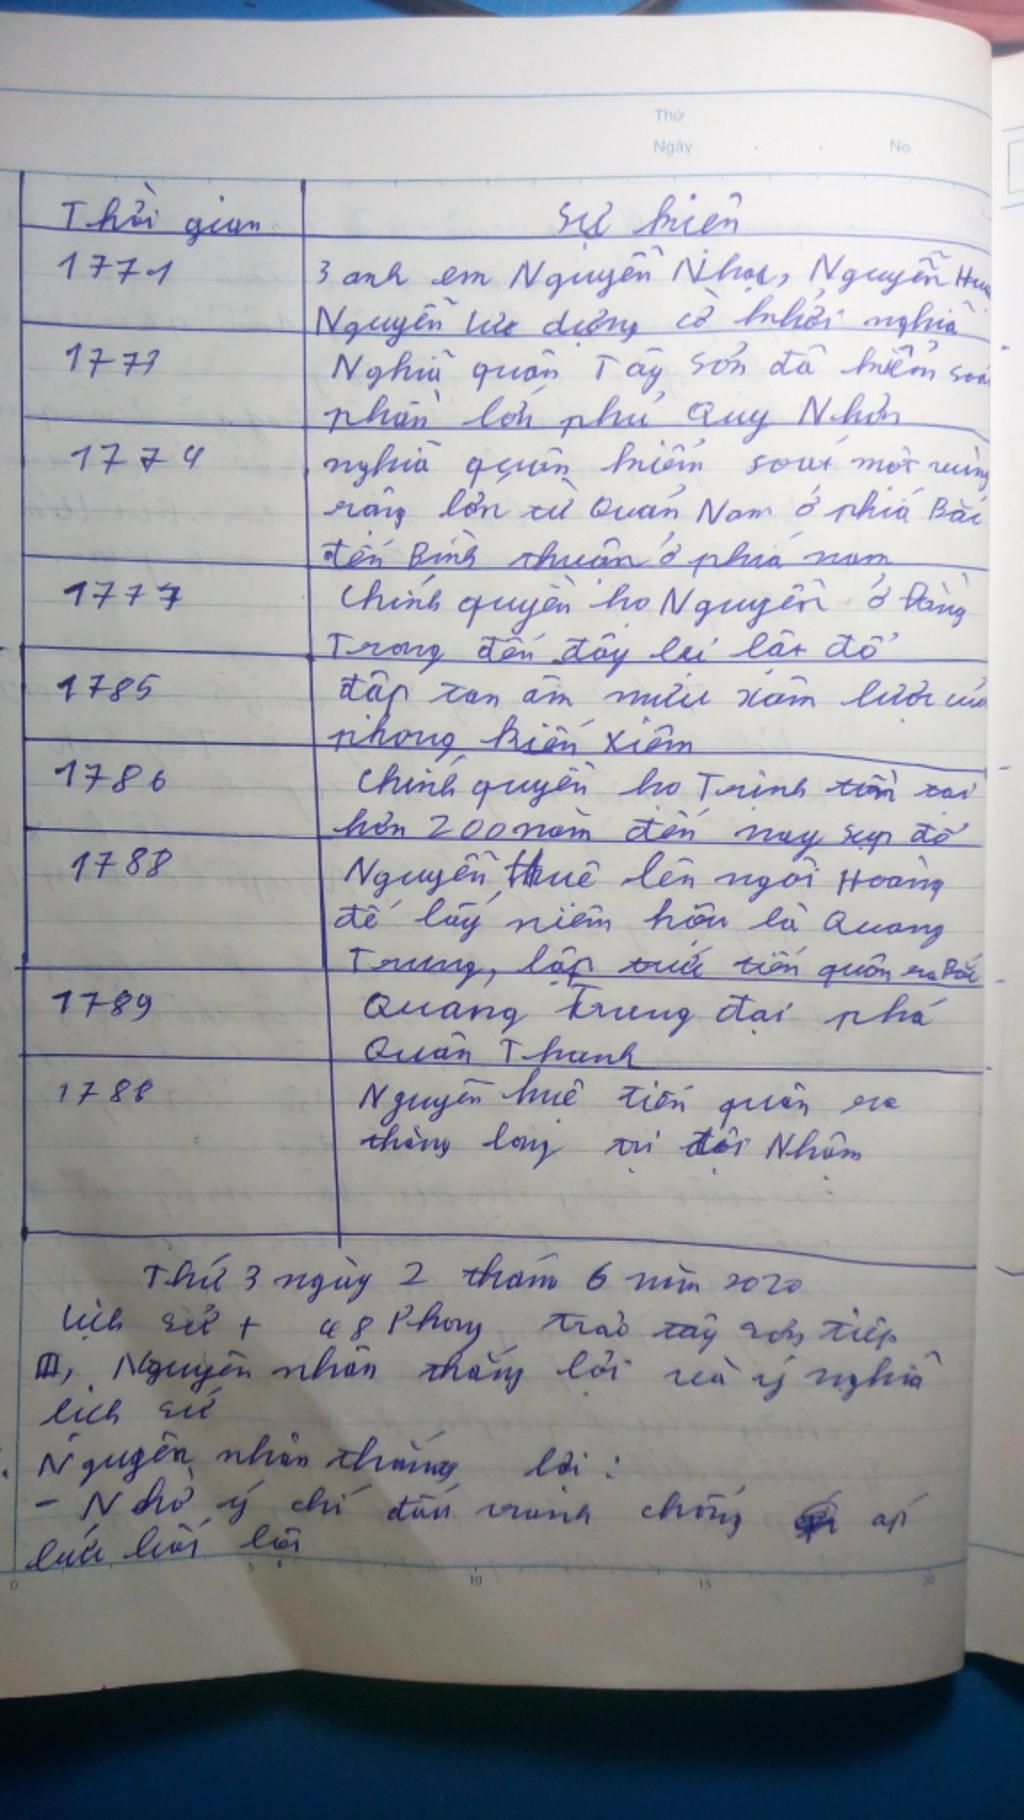 Thứ
Ngày
No.
Thời gian
Sự kiện
1771
3 anh em Nguyễn Nhạc, Nguyễn Huệ
Nguyễn Lữ dựng cờ khởi nghĩa
1773
Nghĩa quân Tây Sơn đã kiểm soá
phần lớn phủ Quy Nhơn
1774
nghĩa quân kiểm soát một vùng
rộng lớn từ Quảng Nam ở phía Bắc
đến Bình thuận ở phía nam
1777
Chính quyền họ Nguyễn ở Đàng
Trong đến đây lại lật đổ
1785
đập tan âm mưu xâm lược củ
phong kiến Xiêm
1786
Chính quyền họ Trịnh tồn tại
hơn 200 năm đến nay sụp đổ
1788
Nguyễn Huệ lên ngôi Hoàng
đế lấy niêm hiệu là Quang
Trung, lập tức tiến quân ra Bắc
1789
Quang Trung đại phá
Quân Thanh
1788
Nguyễn huệ tiến quân ra
thăng long trị tội Nhậm
Thứ 3 ngày 2 tháng 6 năm 2020
Lịch sử + 48 Phong trào tây sơn tiếp
III, Nguyên nhân thắng lợi và ý nghĩa
lịch sử
Nguyên nhân thắng lợi :
- Nhờ ý chí đấu tranh chống áp
bức bóc lột
0 5 10 15 20